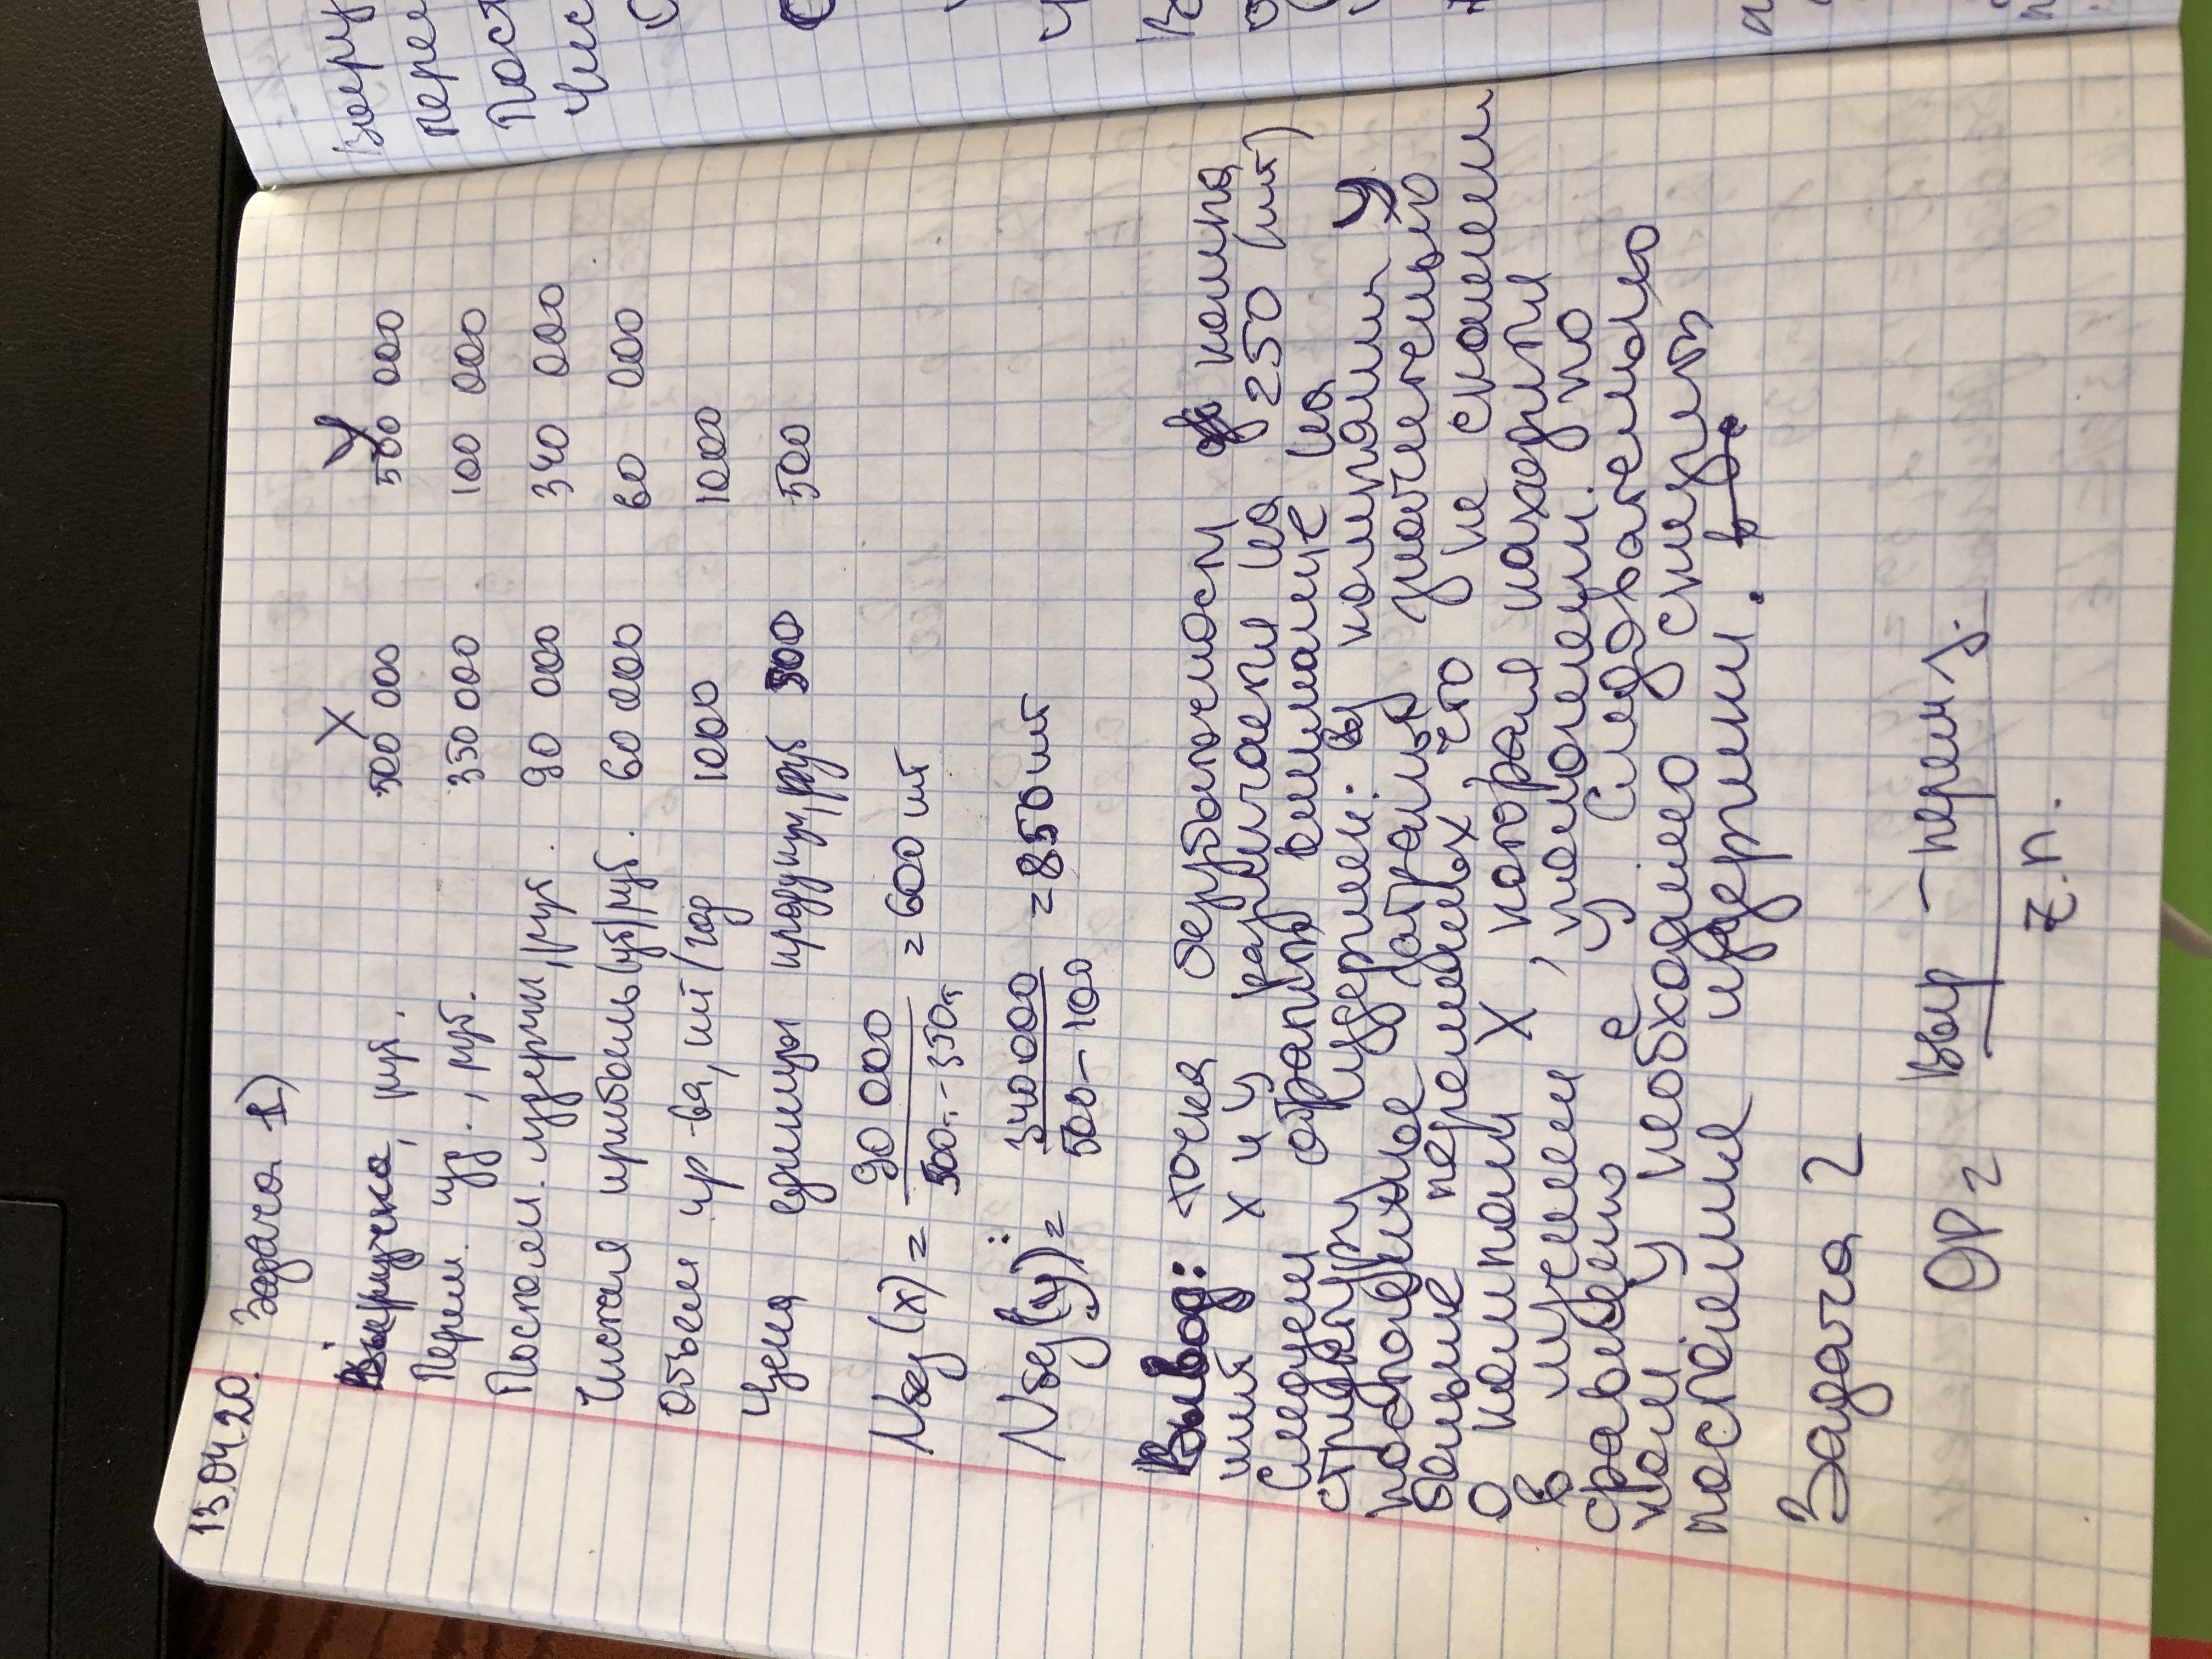 13.04.20.
Задача 1)
X У
Выручка, руб. 500 000 500 000
Перем. изд., руб. 350 000 100 000
Постоян. издержки, руб. 90 000 340 000
Чистая прибыль (уб) руб. 60 000 60 000
Объем пр-ва, шт/год 1000 1000
Цена единицы продукции, руб 500 500
Nбез(x) = 90 000 / 500т. - 350т = 600 шт
Nбез(y) = 340 000 / 500 - 100 = 850 шт
Вывод: точка безубыточности компа
ний X и У различается на 250 (шт)
Следует обратить внимание на
структуру издержек: у компании У
постоянные затраты значительно
больше переменных, что не скажешь
о компании X, которая находится
в лучшем положении. по
сравнению с У. Следовательно
ком. У необходимо снизить
постоянные издержки.
Задача 2
ОР = Выр - перем з. / Z.П.
Выру
перем
Пост
Чис